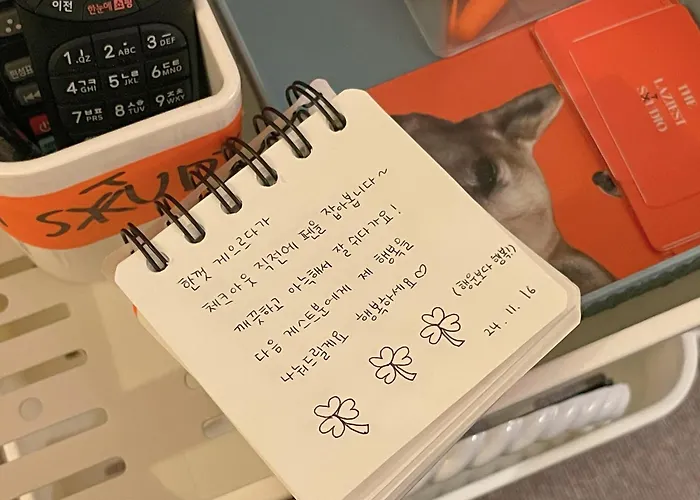 이전
한눈에 쇼핑
1.,QZ
2 ABC
3 DEF
4ㄱㅋ GHI
5ㄴㄹ JKL
6ㄷㅌ MNO
7ㅂㅍ PRS
8ㅅㅎ TUV
9ㅈㅊ WXY
음성
THE
LAZIEST
STUDIO
한껏 게으르다가
체크아웃 직전에 펜을 잡아봅니다~
깨끗하고 아늑해서 잘 쉬다가요!
다음 게스트분에게 제 행복을
나눠드릴게요 행복하세요♡
(행운보다 행복!)
24. 11. 16